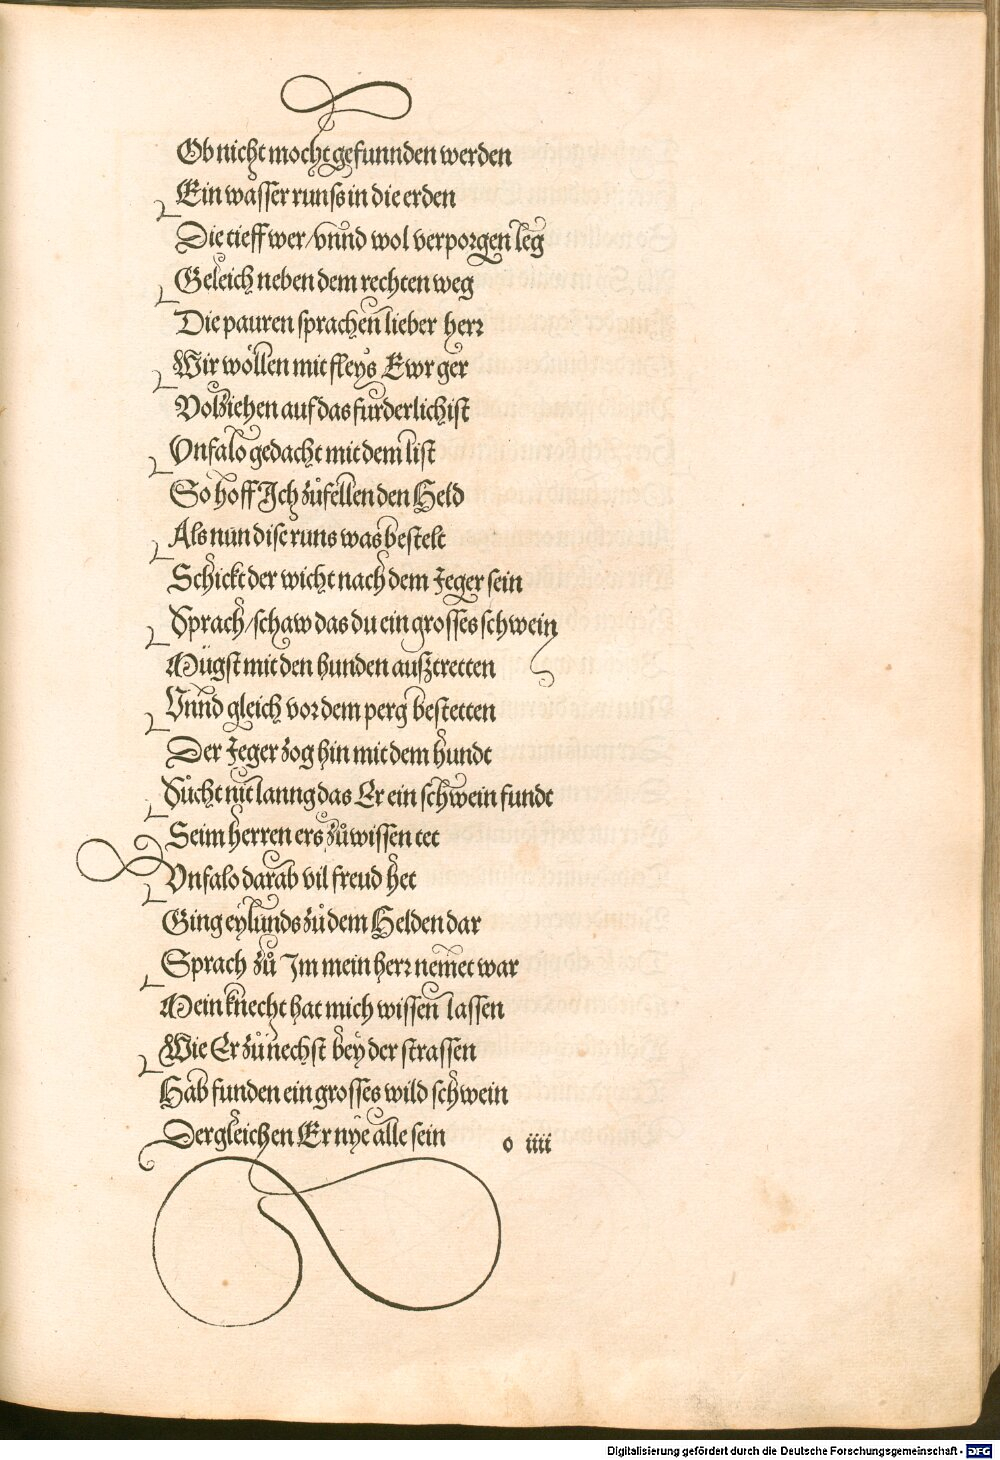 Ob nicht mocht gefunnden werden
Ein wasser runss in die erden
Die tieff wer/vnnd wol verporgen leg
Geleich neben dem rechten weg
Die pauren sprachen lieber herr
Wir wöllen mit fleys Ewr ger
Volziehen auf das furderlichist
Vnfalo gedacht mit dem list
So hoff Ich zůfellen den Held
Als nun dise runs was bestelt
Schickt der wicht nach dem Jeger sein
Sprach/schaw das du ein grosses schwein
Mügst mit den hunden außtretten
Vnnd gleich vor dem perg bestetten
Der Jeger zog hin mit dem hundt
Sücht nit lanng das Er ein schwein fundt
Seim herren ers zůwissen tet
Vnfalo darab vil freud het
Ging eylunds zů dem Helden dar
Sprach zů Im mein herr nemet war
Mein knecht hat mich wissen lassen
Wie Er zůnechst bey der strassen
Hab funden ein grosses wild schwein
Dergleichen Er nye alle sein
o iiii
Digitalisierung gefördert durch die Deutsche Forschungsgemeinschaft - DFG